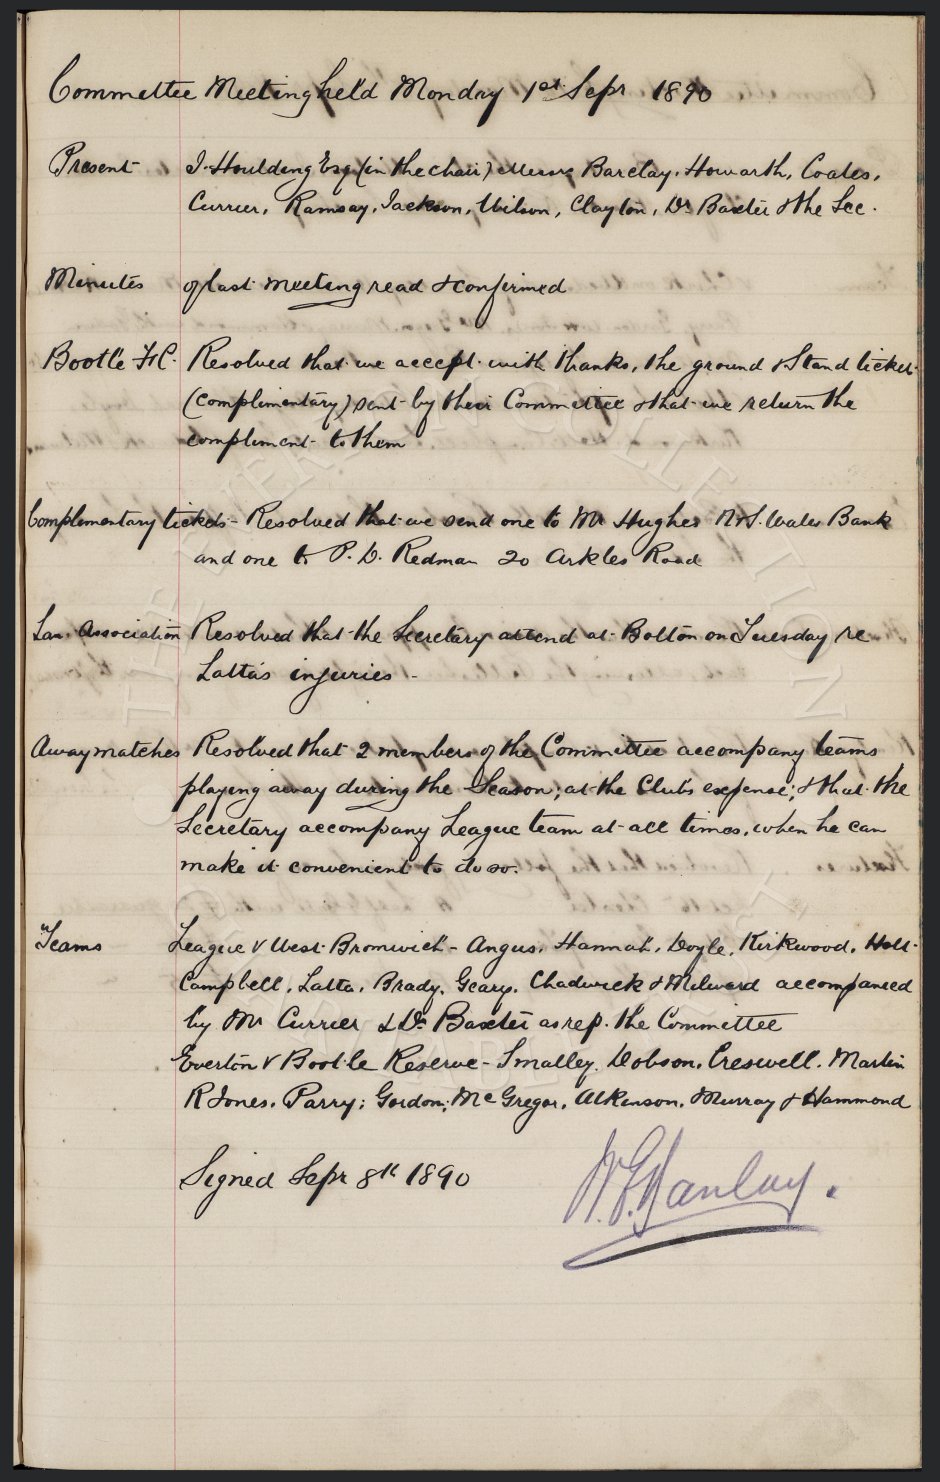 Committee Meeting held Monday 1st Sepr 1890
Present J. Houlding Esq (in the chair) Messrs Barclay, Howarth, Coates,
Currier, Ramsay, Jackson, Wilson, Clayton, Dr Baxter & the Sec.
Minutes of last meeting read & confirmed
Bootle F.C. Resolved that we accept with thanks, the ground & Stand ticket
(complimentary) sent by their Committee & that we return the
compliment to them
Complimentary tickets - Resolved that we send one to Mr Hughes N & S. Wales Bank
and one to P. D. Redman 20 Arkles Road
Lan. Association Resolved that the Secretary attend at Bolton on Tuesday re
Latta's injuries -
Away matches Resolved that 2 members of the Committee accompany teams
playing away during the Season; at the Club's expense; & that the
Secretary accompany League team at all times, when he can
make it convenient to do so.
Teams League v West Bromwich - Angus, Hannah, Doyle, Kirkwood, Holt
Campbell, Latta, Brady, Geary, Chadwick & Milward accompanied
by Mr Currier & Dr Baxter as rep. the Committee
Everton v Bootle Reserve - Smalley, Dobson, Creswell, Martin
R Jones, Parry; Gordon, McGregor, Atkinson, Murray & Hammond
Signed Sepr 8th 1890
THE EVERTON COLLECTION